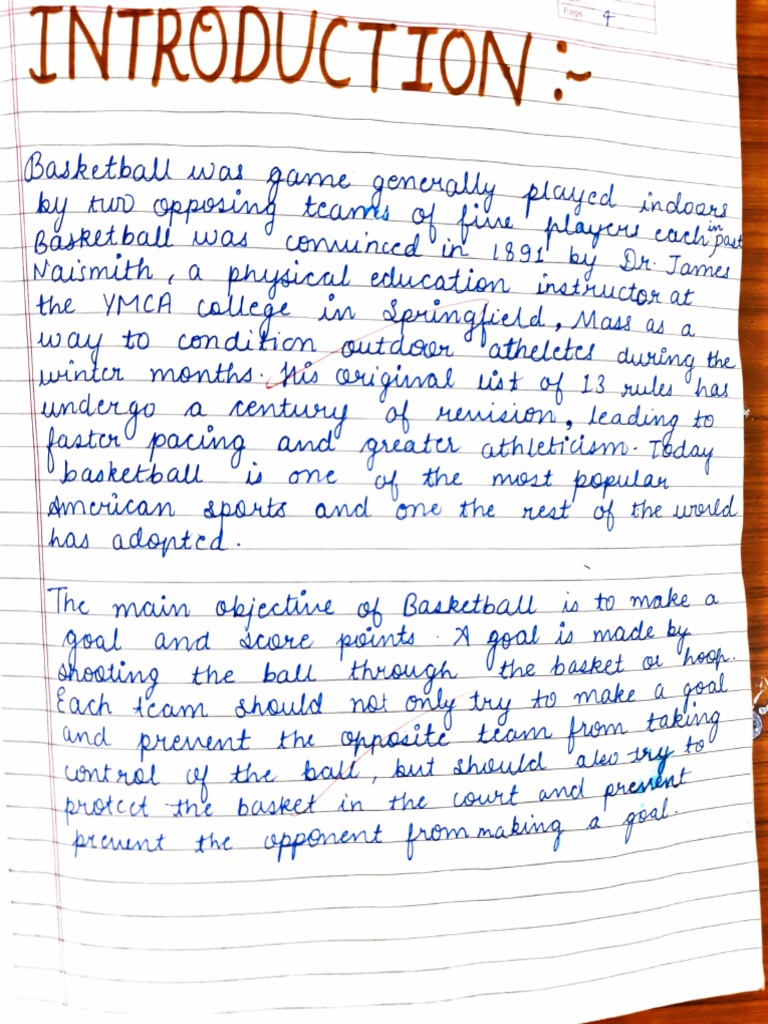 Page 4
INTRODUCTION :~
Basketball was game generally played indoors
by two opposing teams of five players each in past
Basketball was convinced in 1891 by Dr. James
Naismith, a physical education instructor at
the YMCA college in Springfield, Mass as a
way to condition outdoor atheletes during the
winter months. His original list of 13 rules has
undergo a century of revision, leading to
faster pacing and greater athleticism. Today
basketball is one of the most popular
American sports and one the rest of the world
has adopted.
The main objective of Basketball is to make a
goal and score points. A goal is made by
shooting the ball through the basket or hoop.
Each team should not only try to make a goal
and prevent the opposite team from taking
control of the ball, but should also try to
protect the basket in the court and prevent
prevent the opponent from making a goal.